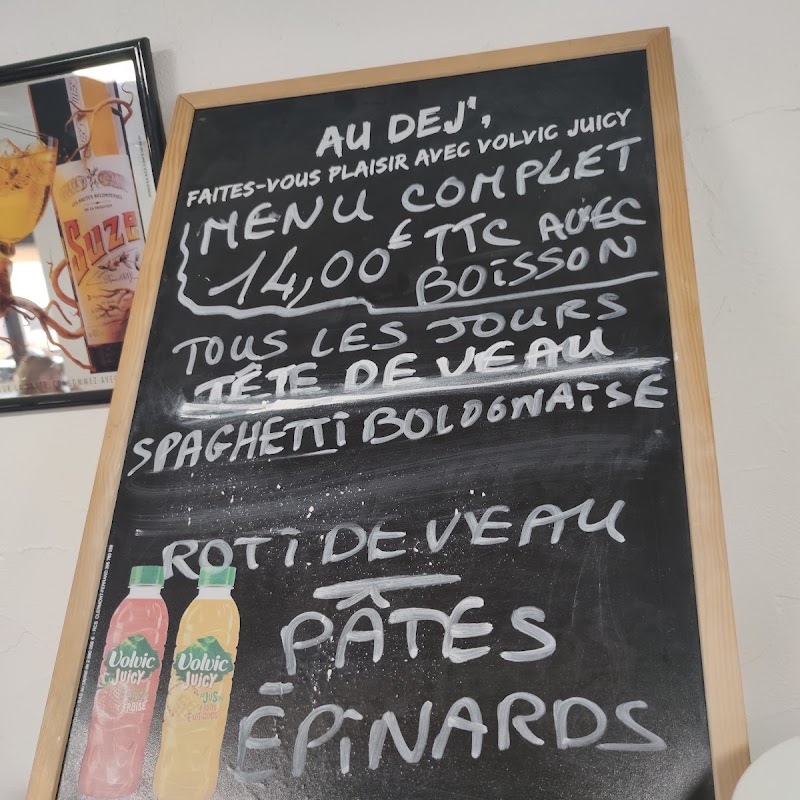 AU DEJ',
FAITES-VOUS PLAISIR AVEC VOLVIC JUICY
MENU COMPLET
14,00€ TTC AVEC
BOISSON
TOUS LES JOURS
TÊTE DE VEAU
SPAGHETTI BOLOGNAISE
ROTI DE VEAU
PÂTES
ÉPINARDS
Volvic
JUICY
FRAISE
Volvic
JUICY
JUS
Suze